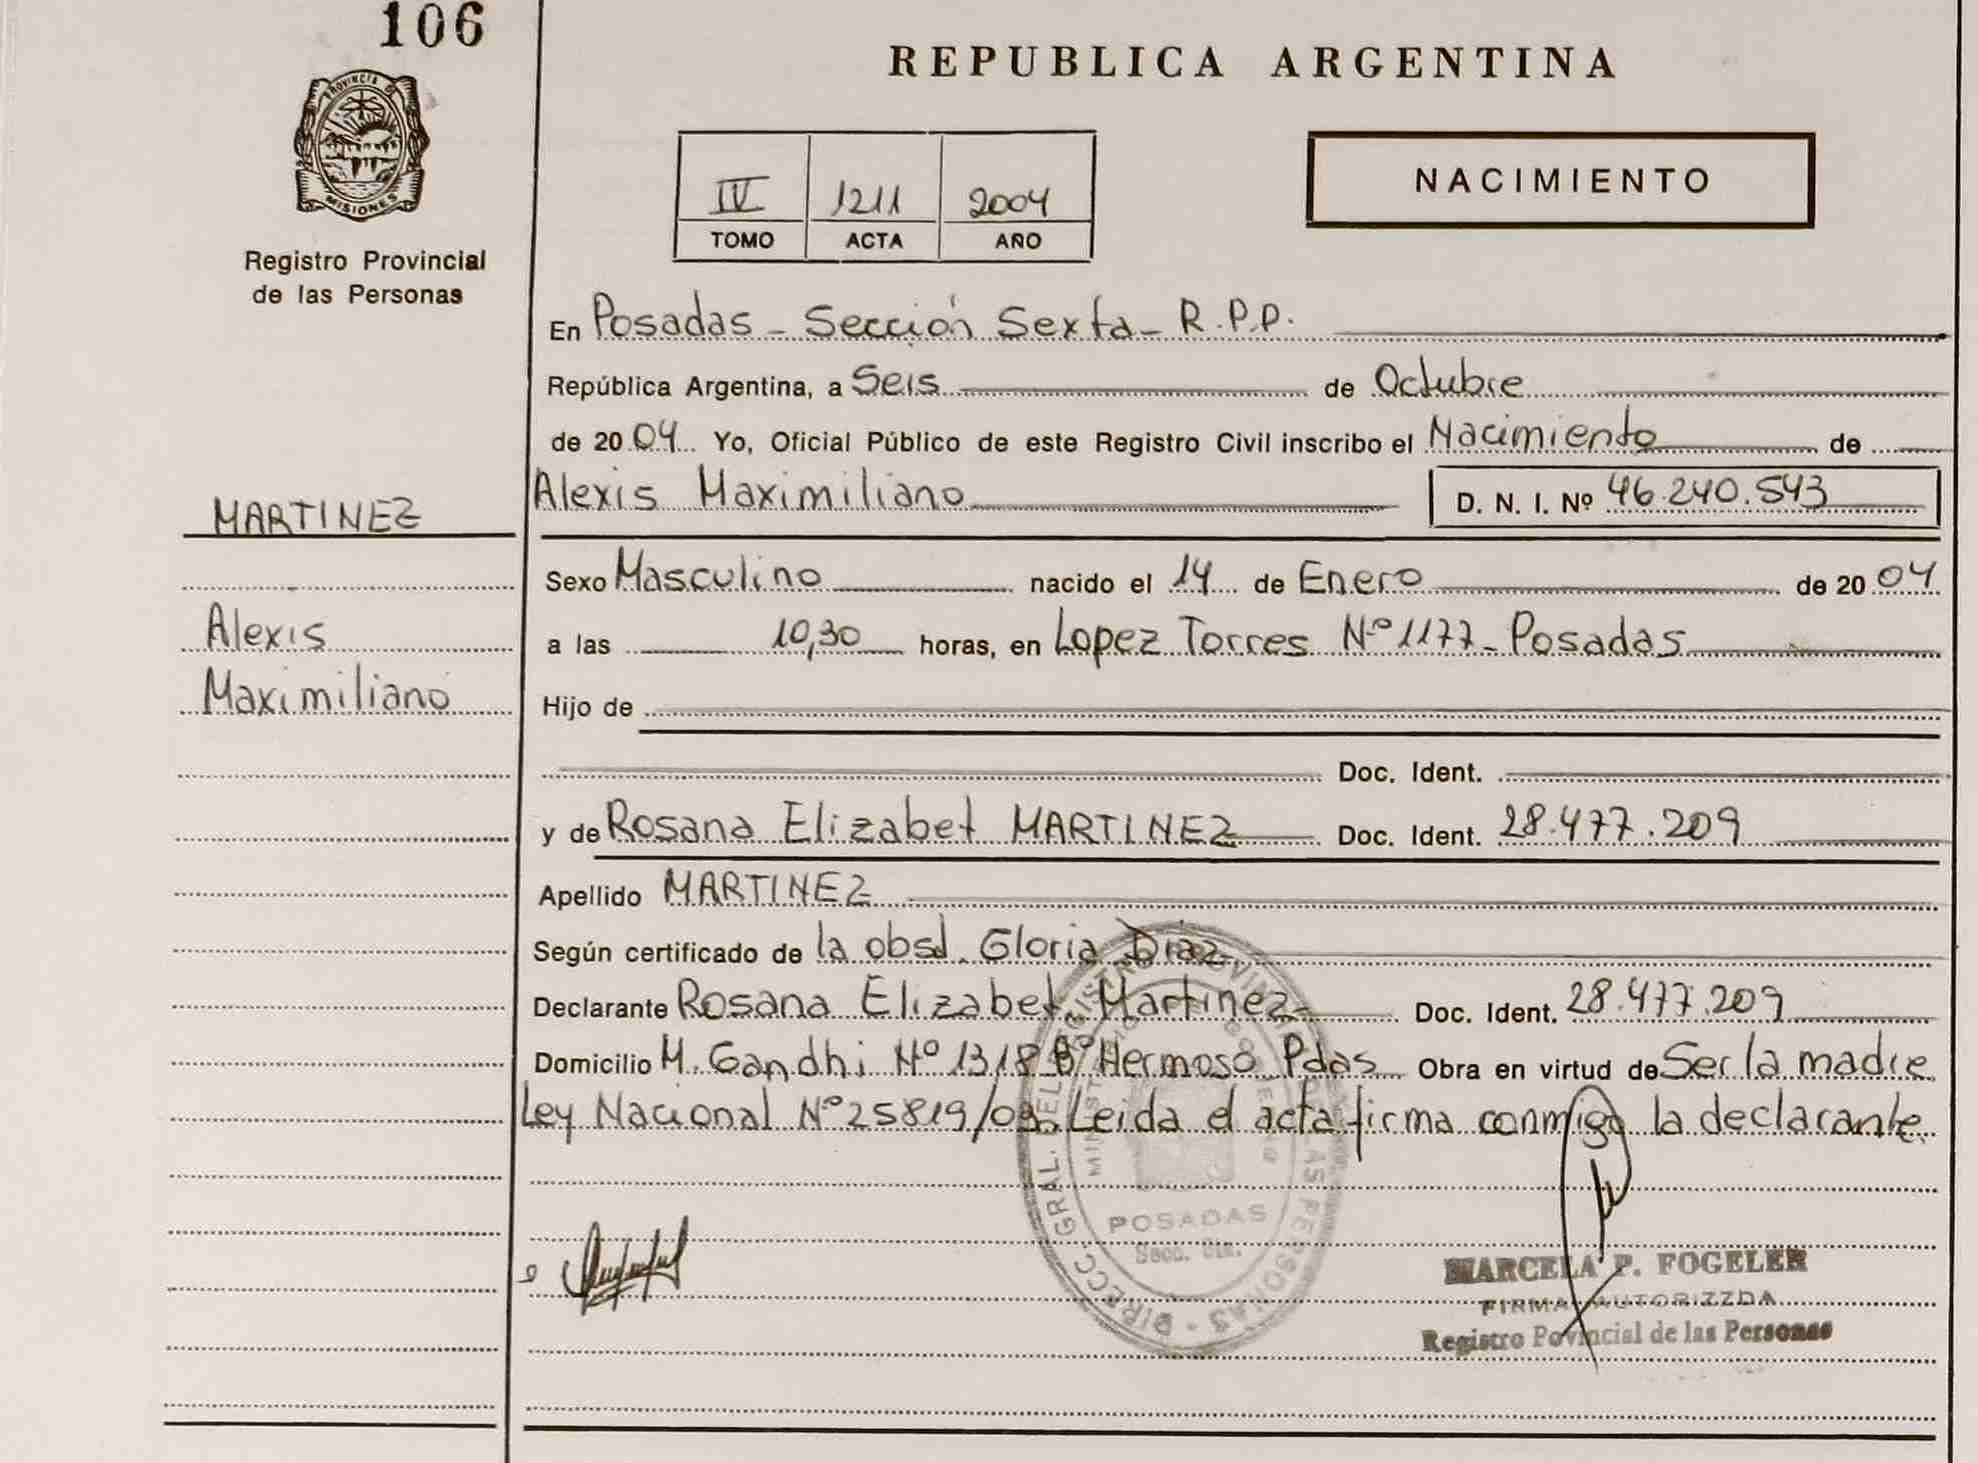 106
PROVINCIA DE
MISIONES
Registro Provincial
de las Personas
REPUBLICA ARGENTINA
IV 1211 2004
TOMO ACTA AÑO
NACIMIENTO
En Posadas - Sección Sexta - R.P.P.
República Argentina, a Seis de Octubre
de 2004 Yo, Oficial Público de este Registro Civil inscribo el Nacimiento de
MARTINEZ
Alexis Maximiliano D. N. I. Nº 46.240.543
Sexo Masculino nacido el 14 de Enero de 2004
Alexis
a las 10,30 horas, en Lopez Torres Nº 1177 - Posadas
Maximiliano
Hijo de
Doc. Ident.
y de Rosana Elizabet MARTINEZ Doc. Ident. 28.477.209
Apellido MARTINEZ
Según certificado de la obst. Gloria Diaz
Declarante Rosana Elizabet Martinez Doc. Ident. 28.477.209
Domicilio M. Gandhi Nº 1318 Bº Hermoso Pdas Obra en virtud de Ser la madre
Ley Nacional Nº 25819/03. Leida el acta firma conmigo la declarante.
POSADAS
Secc. 6ta.
MARCELA P. FOGELER
FIRMA AUTORIZZDA
Registro Povincial de las Personas